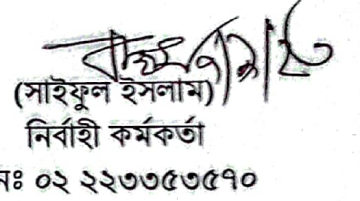 (সাইফুল ইসলাম)
নির্বাহী কর্মকর্তা
নঃ ০২ ২২৩৩৫৩৫৭০